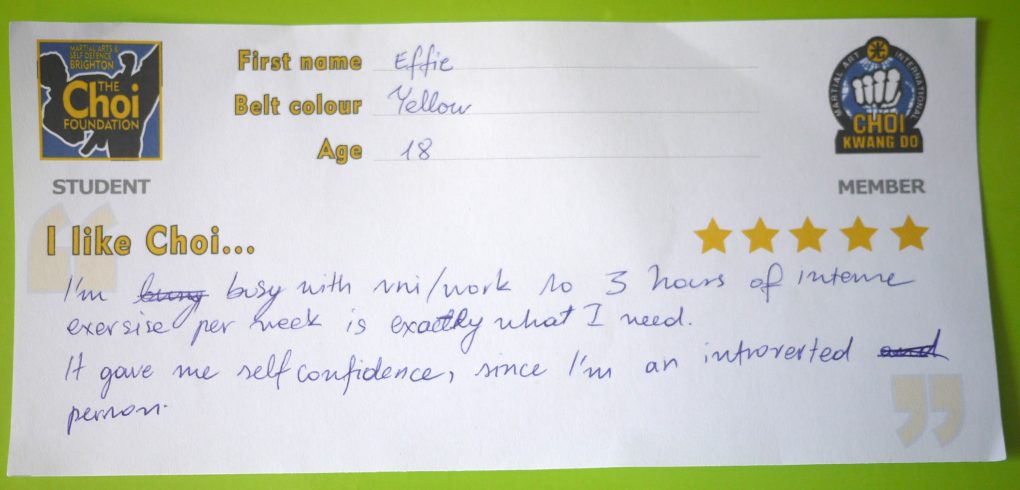 MARTIAL ARTS &
SELF DEFENCE
BRIGHTON
THE
Choi
FOUNDATION
STUDENT
First name Effie
Belt colour Yellow
Age 18
MARTIAL ART INTERNATIONAL
CHOI
KWANG DO
MEMBER
I like Choi...
I'm busy with uni/work so 3 hours of intense
exersise per week is exactly what I need.
It gave me self confidence, since I'm an introverted and
person.